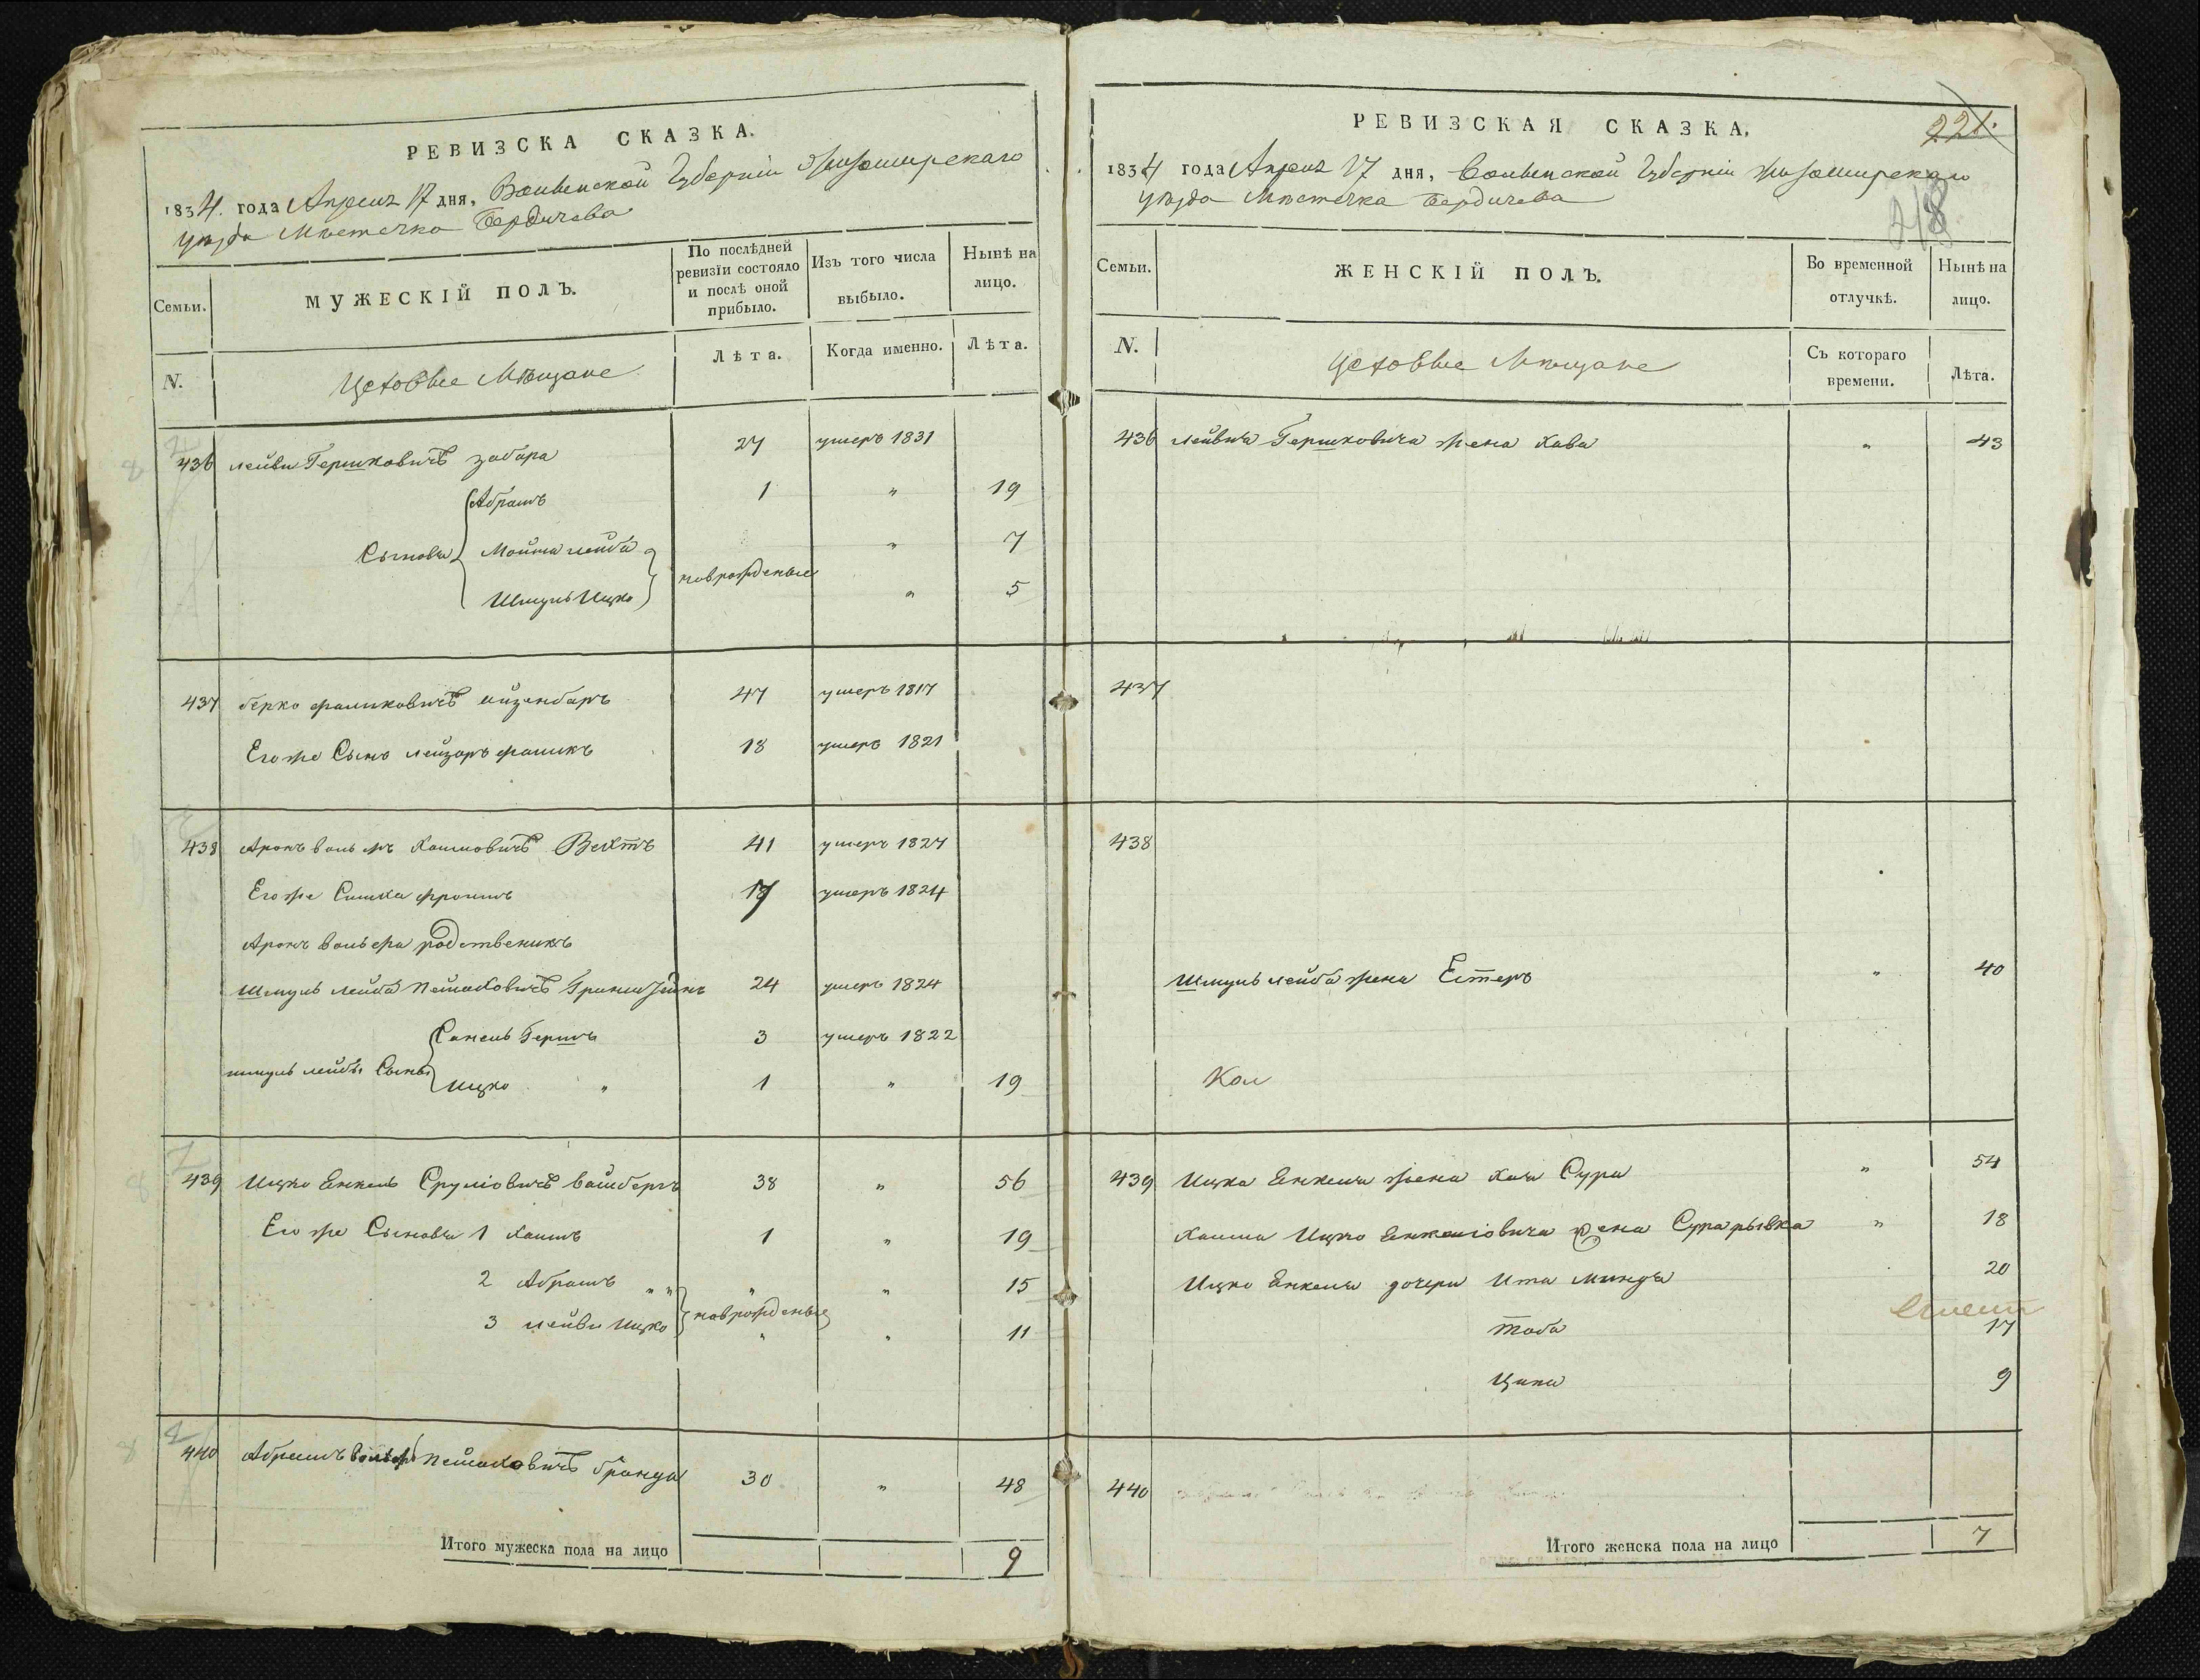 РЕВИЗСКА СКАЗКА.
1834. года Апреля 17 дня, Волынской Губерніи Житомирскаго
уѣзда Мѣстечка Бердичева
Семьи.
МУЖЕСКІЙ ПОЛЪ.
По послѣдней ревизіи состояло и послѣ оной прибыло.
Изъ того числа выбыло.
Нынѣ на лицо.
N.
Цеховые Мѣщане
Лѣта.
Когда именно.
Лѣта.
436 Лейви Гершковичъ забара 27 умеръ 1831
Абрамъ 1 " 19
Сыновья Мойша лейба новрожденые " 7
Шмуль Ицко " 5
437 берко фалиховичъ айзенбаръ 47 умеръ 1817
Его же Сынъ лейзоръ фаликъ 18 умеръ 1821
438 Аронъ вольфъ Хаимовичъ Вехтъ 41 умеръ 1827
Его же Симха фроимъ 17 умеръ 1824
Аронъ вольфа родственикъ
Шмуль лейба Пейсаховичъ 24 умеръ 1824
Гершъ 3 умеръ 1822
шмуль лейбы Сыны
Ицко " 1 " 19
439 Ицко Енкель Сруліовичъ вайсбергъ 38 " 56
Его же Сыновья 1 Хаимъ 1 " 19
2 Абрамъ " " " " 15
новрожденые
3 лейви Ицко " " 11
440 Абрамъ вольфъ Пейсаховичъ 30 " 48
Итого мужеска пола на лицо 9
РЕВИЗСКАЯ СКАЗКА.
221.
1834 года Апреля 17 дня, Волынской Губерніи Житомирскаго
уѣзда Мѣстечка Бердичева
218
Семьи.
ЖЕНСКІЙ ПОЛЪ.
Во временной отлучкѣ.
Нынѣ на лицо.
N.
Цеховые Мѣщане
Съ котораго времени.
Лѣта.
436 Лейвия Гершковича жена Хава " 43
437
438
Шмуль лейба жена Естеръ " 40
439 Ицка Енкеля жена Хая Сура " 54
Хаима Ицко Енкеліовича жена Сура рывка " 18
Ицко Енкеля дочери Ита Миндя 20
Тоба 17
Ципа 9
440
Итого женска пола на лицо 7